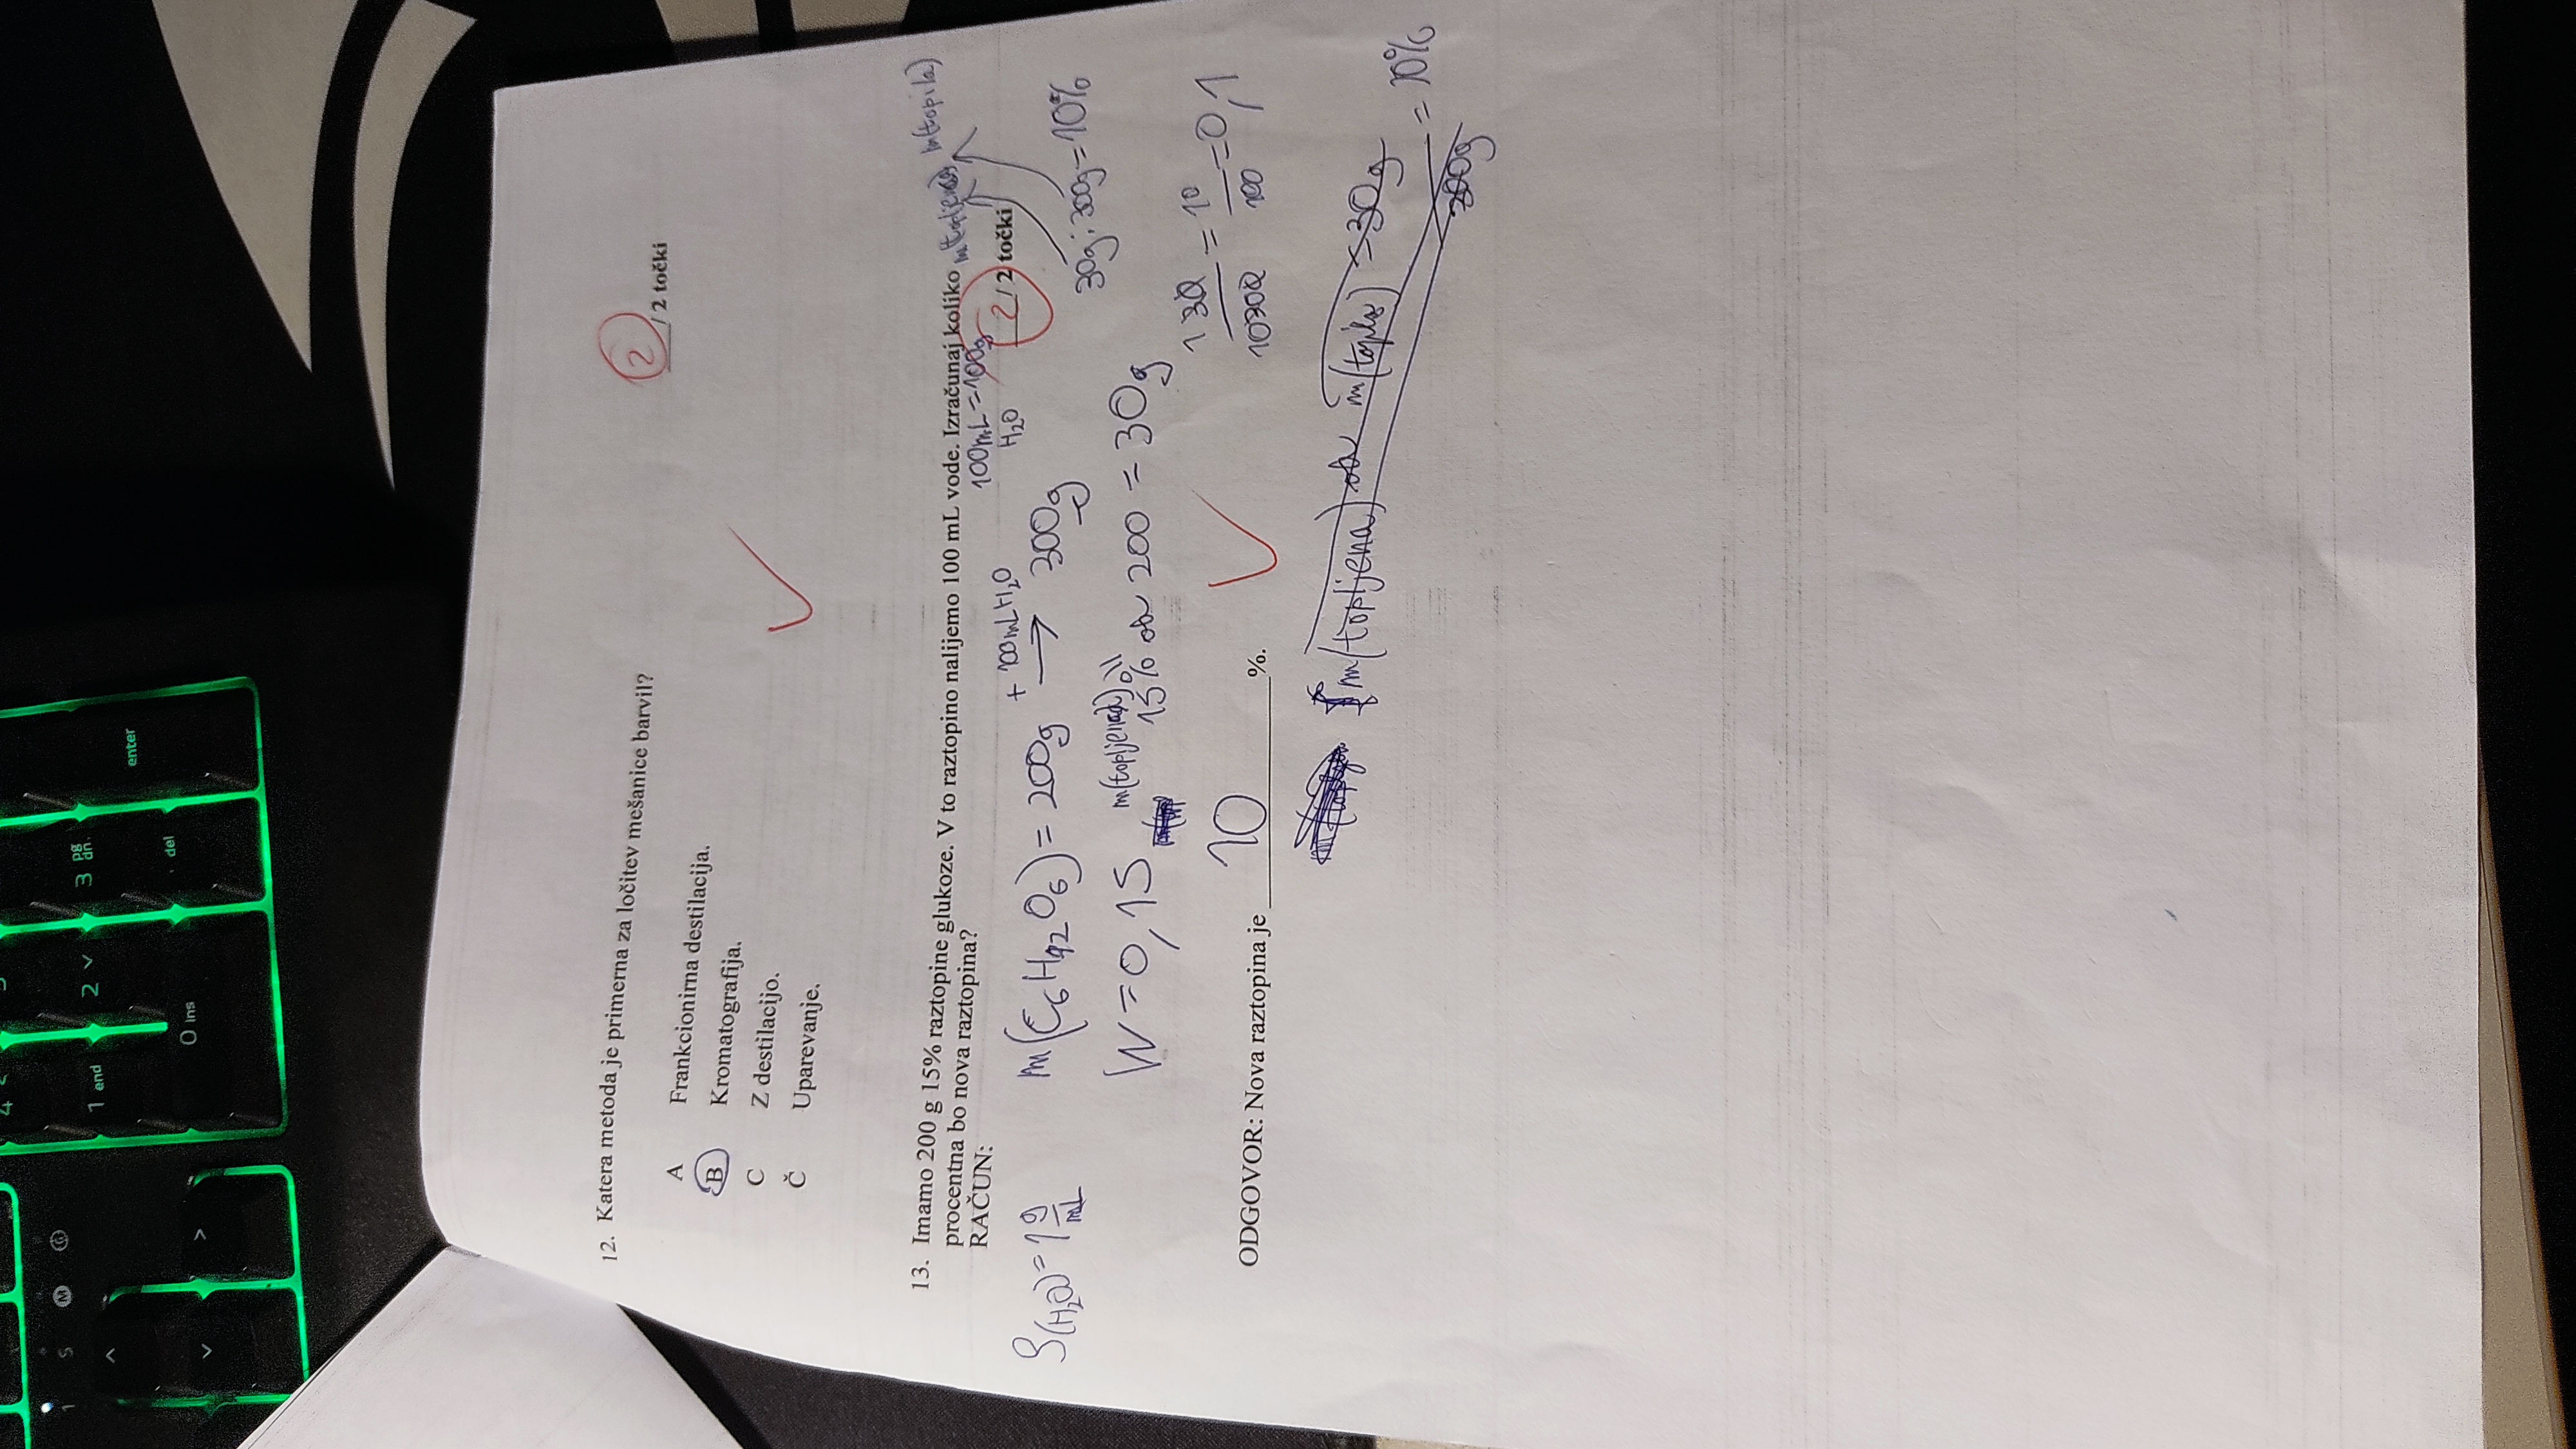 4 <
1 S M G
1 end 2 3 pg dn
enter
0 ins . del
12. Katera metoda je primerna za ločitev mešanice barvil?
2 / 2 točki
A Frankcionirna destilacija.
B Kromatografija.
C Z destilacijo.
Č Uparevanje.
13. Imamo 200 g 15% raztopine glukoze. V to raztopino nalijemo 100 mL vode. Izračunaj koliko
m(topila)
procentna bo nova raztopina?
100mL = 100g
H2O
2 / 2 točki
RAČUN:
ρ(H2O) = 1 g/mL
m(C6H12O6) = 200g + 100mL H2O → 300g
30g : 300g = 10%
W = 0,15 m(topljenca) 15% od 200 = 30g
130/10300 = 10/100 = 0,1
ODGOVOR: Nova raztopina je 10 %.
m(topljena) od m(topila) = 30g
300g = 10%